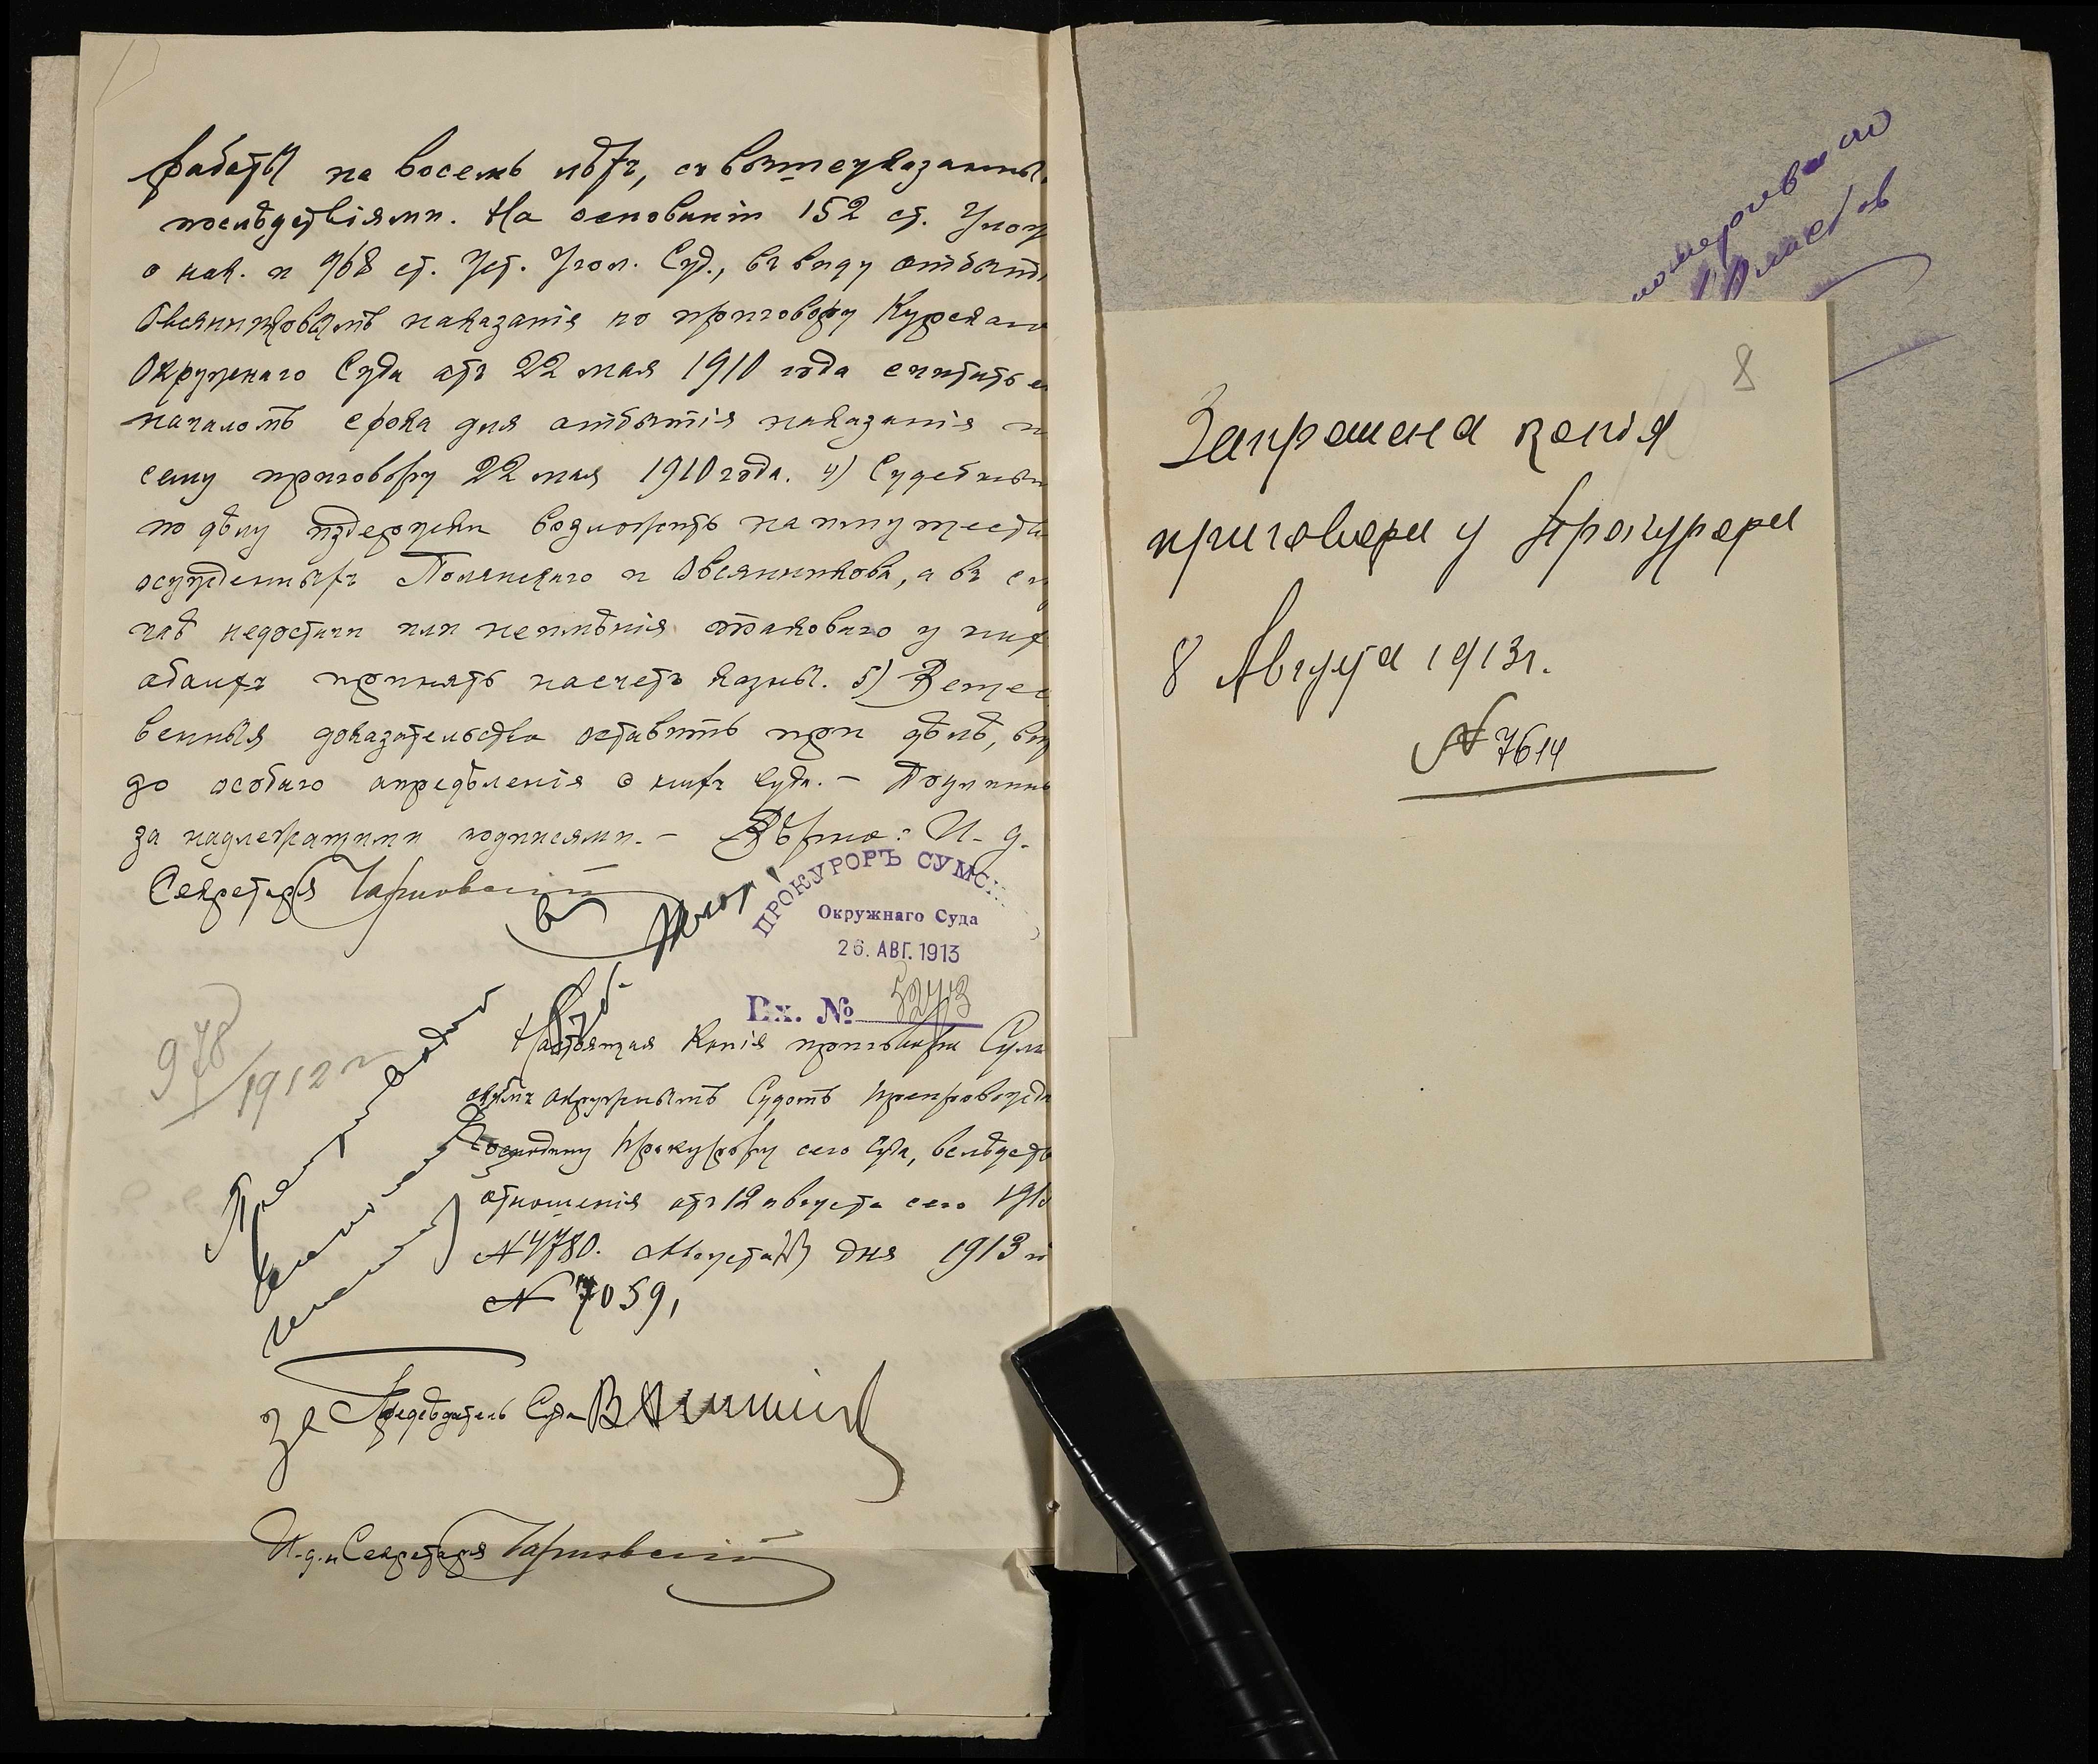 работы на восемь лѣтъ, съ вышеуказанны
послѣдствіями. На основаніи 152 ст. Улож
о нак. и 968 ст. Уст. Угол. Суд., въ виду отбыті
Овсянниковымъ наказанія по приговору Курскаго
Окружнаго Суда отъ 22 мая 1910 года считать е
началомъ срока для отбытія наказанія п
сему приговору 22 мая 1910 года. 4) Судебныя
по дѣлу издержки возложить на имущества
осужденныхъ Полянскаго и Овсянникова, а въ сл
чаѣ недостачи или неимѣнія таковаго у них
обоихъ принять на счетъ казны. 5) Вещес
венныя доказательства оставить при дѣлѣ, вп
до особаго опредѣленія о нихъ Суда. – Подлинны
за надлежащими подписями. – Вѣрно: И. д.
Секретаря Чарновскій
ПРОКУРОРЪ СУМС
Окружнаго Суда
26. АВГ. 1913
Вх. № 5273
978/1912 г
Настоящая копія приговора Сум
скимъ Окружнымъ Судомъ препровожда
Господину Прокурору сего Суда, вслѣдств
отношенія отъ 12 августа сего 191
№ 4780. Августа дня 1913 г
№ 7059,
За Предсѣдатель Суда
И. д. Секретаря Чарновскій
8
Запрошена копія
приговора у Прокурора
8 Августа 1913 г.
№ 7614